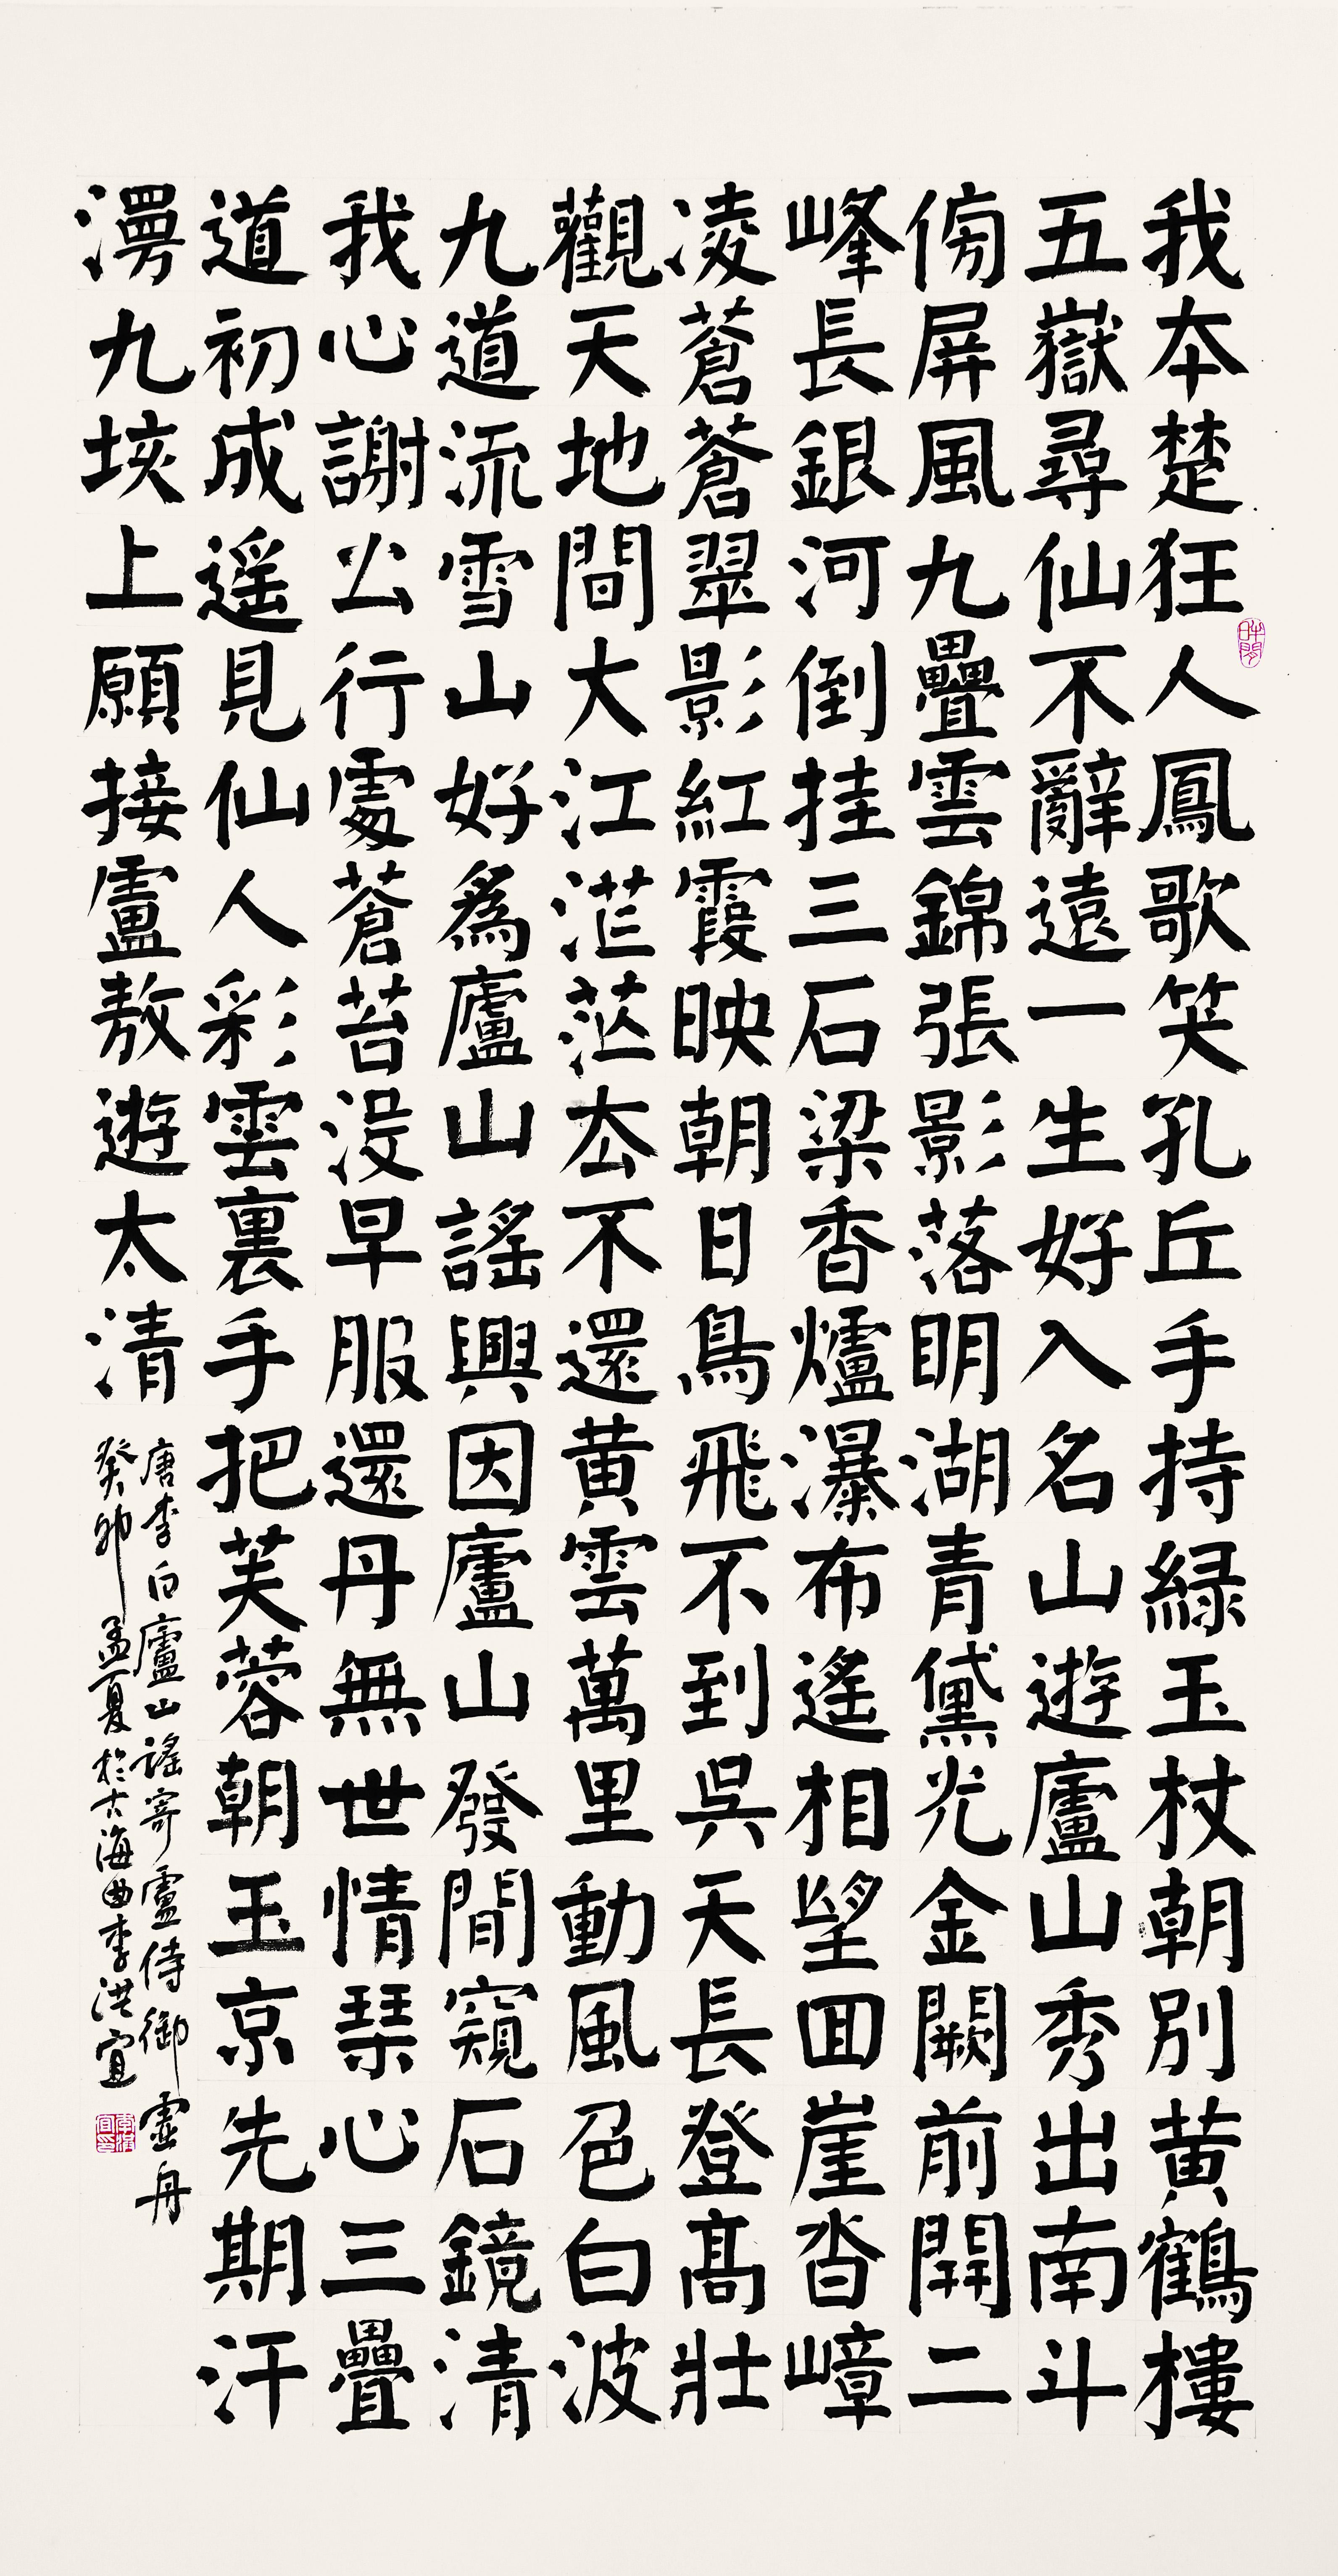 我本楚狂人鳳歌笑孔丘手持緑玉杖朝別黄鶴樓
五嶽尋仙不辭遠一生好入名山遊廬山秀出南斗
傍屏風九疊雲錦張影落明湖青黛光金闕前開二
峰長銀河倒挂三石梁香爐瀑布遙相望回崖沓嶂
凌蒼蒼翠影紅霞映朝日鳥飛不到吳天長登高壯
觀天地間大江茫茫去不還黄雲萬里動風色白波
九道流雪山好爲廬山謠興因廬山發閒窺石鏡清
我心謝公行處蒼苔没早服還丹無世情琴心三疊
道初成遥見仙人彩雲裏手把芙蓉朝玉京先期汗
漫九垓上願接盧敖遊太清
唐李白廬山謠寄盧侍御虛舟
癸卯孟夏於古海曲李洪宜